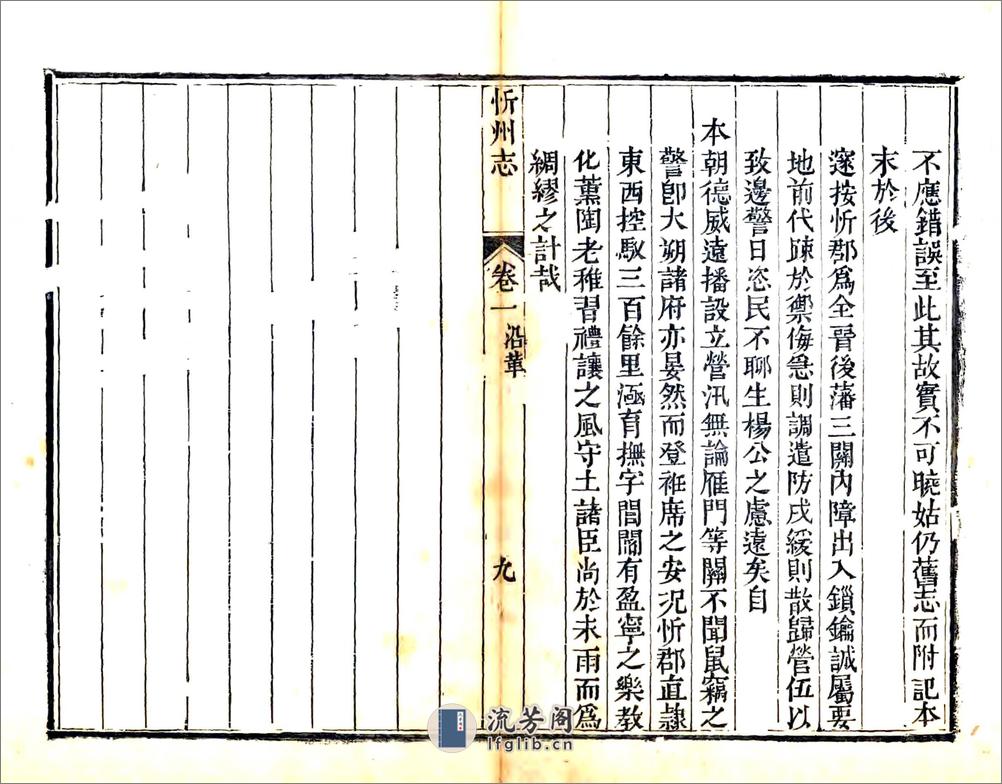 不應錯誤至此其故實不可曉姑仍舊志而附記本
末於後
邃按忻郡爲全晉後藩三關內障出入鎖鑰誠屬要
地前代踈於禦侮急則調遣防戍緩則散歸營伍以
致邊警日恣民不聊生楊公之慮遠矣自
本朝德威遠播設立營汛無論雁門等關不聞鼠竊之
警卽大朔諸府亦晏然而登袵席之安况忻郡直隷
東西控馭三百餘里涵育撫字閭閻有盈寧之樂教
化薰陶老稚習禮讓之風守土諸臣尚於未雨而爲
綢繆之計哉
忻州志
卷一
沿革
九
流芳阁
lfglib.cn